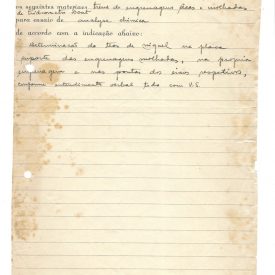 os seguintes materiaes, trens de engrenagens secas e molhadas
de hidrometro
para ensaio de analyse chimica
de accordo com a indicação abaixo:
Determinação do teor de niquel na placa
suporte das engrenagens molhadas, na propria
engrenagem e nas pontas dos eixos respectivos,
conforme entendimento verbal tido com V.S.